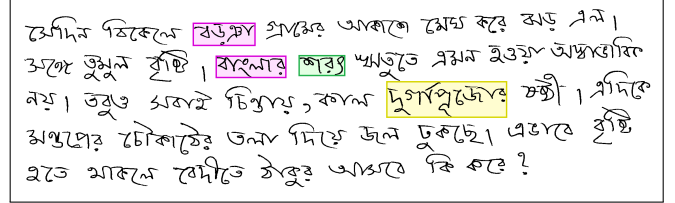 সেদিন বিকেলে বড়ঞা গ্রামের আকাশে মেঘ করে ঝড় এল।
সঙ্গে তুমুল বৃষ্টি। বাংলার শরৎ ঋতুতে এমন হওয়া অস্বাভাবিক
নয়। তবুও সবাই চিন্তায়, কাল দুর্গাপূজোর ষষ্ঠী। এদিকে
মণ্ডপের চৌকাঠের তলা দিয়ে জল ঢুকছে। এভাবে বৃষ্টি
হতে থাকলে বেদীতে ঠাকুর আসবে কি করে?